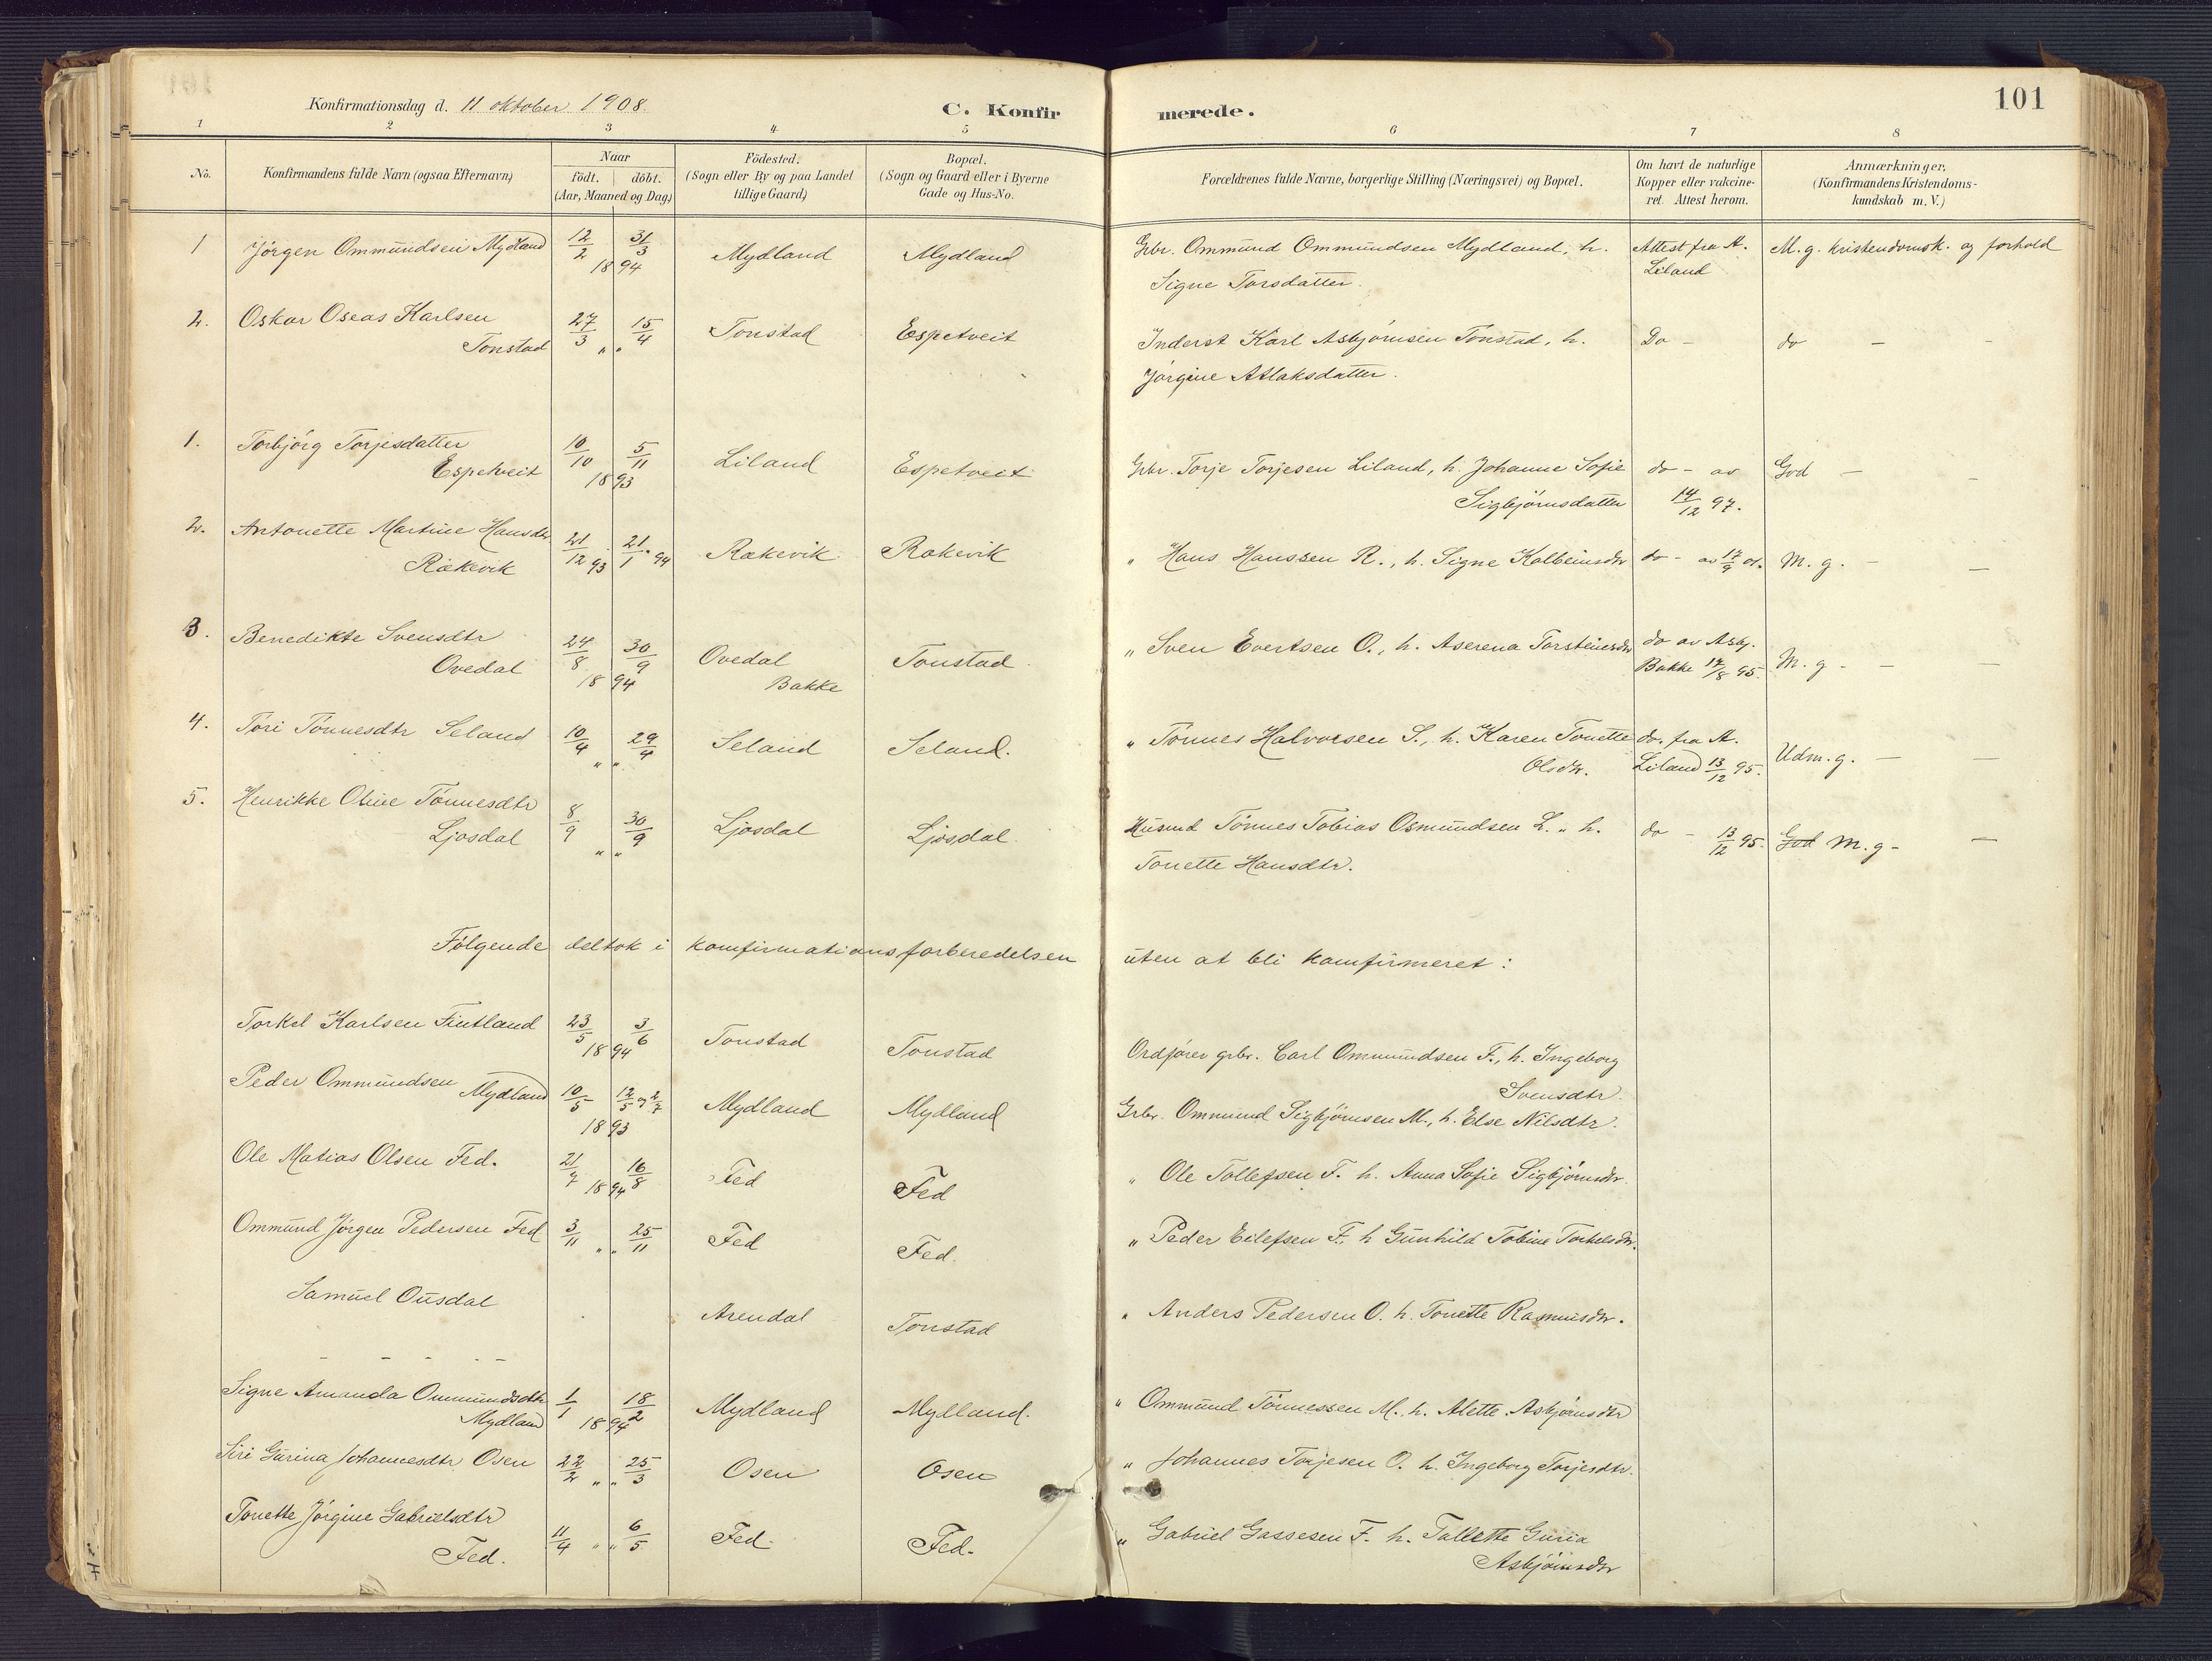 Konfirmationsdag d. 11 oktober 1908.
C. Konfirmerede.
101
1 2 3 4 5 6 7 8
No.
Konfirmandens fulde Navn (ogsaa Efternavn)
Naar
födt. döbt.
(Aar, Maaned og Dag)
Födested.
(Sogn eller By og paa Landet
tillige Gaard)
Bopæl.
(Sogn og Gaard eller i Byerne
Gade og Hus-No.
Forældrenes fulde Navne, borgerlige Stilling (Næringsvei) og Bopæl.
Om havt de naturlige
Kopper eller vakcine-
ret. Attest herom.
Anmærkninger,
(Konfirmandens Kristendoms-
kundskab m. V.)
1 Jörgen Ommundsen Mydland 12/2 31/3 1894 Mydland Mydland Grbr. Ommund Ommundsen Mydland, h. Attest fra A. M. g. kristendomsk. og forhold
Signe Torsdatter. Liland
2. Oskar Oseas Karlsen 27/3 „ „ 15/4 Tonstad Espetveit Inderst Karl Asbjörnsen Tonstad, h. Do - do - -
Tonstad Jörgine Atlaksdatter.
1. Torbjörg Torjesdatter 10/10 5/11 1893 Liland Espetveit Grbr. Torje Torjesen Liland, h. Johanne Sofie do - av God - -
Espetveit Sigbjörnsdatter 14/12 97.
2. Antonette Martine Hansdtr 21/12 93 21/1 94 Rækevik Rækevik „ Hans Hanssen R., h. Signe Kolbeinsdtr do - av 17/9 01. M. g. - -
Rækevik
3. Benedikte Svensdtr 24/8 30/9 1894 Ovedal Tonstad „ Sven Evertsen O., h. Aserena Torsteinsdtr do av Asbj. M. g - -
Ovedal Bakke Bakke 17/8 95.
4. Töri Tönnesdtr Seland 10/4 „ „ 29/4 Seland Seland. „ Tönnes Halvorsen S., h. Karen Tonette do. fra A. Udm. g. - -
Olsdtr. Liland 13/12 95.
5. Henrikke Oline Tönnesdtr 8/9 „ „ 30/9 Ljosdal Ljosdal Husmd Tönnes Tobias Osmundsen L. „ h. do - 13/12 95. God M. g - -
Ljosdal Tonette Hansdtr.
Fölgende deltok i komfirmationsforberedelsen uten at bli komfirmeret:
Torkel Karlsen Fintland 23/5 3/6 1894 Tonstad Tonstad Ordförer grbr. Carl Ommundsen F., h. Ingeborg
Svensdtr.
Peder Ommundsen Mydland 10/5 12/5 og 2/7 1893 Mydland Mydland Grbr. Ommund Sigbjörnsen M., h. Else Nilsdtr.
Ole Matias Olsen Fed. 21/7 16/8 1894 Fed Fed „ Ole Tollefsen F. h. Anna Sofie Sigbjörnsdtr.
Ommund Jörgen Pedersen Fed 3/11 „ „ 25/11 Fed Fed. „ Peder Eilefsen F., h Gunhild Tobine Torkelsdtr.
Samuel Ousdal Arendal Tonstad „ Anders Pedersen O. h. Tonette Rasmusdtr.
- - - - -
Signe Amanda Ommundsdtr 1/1 18/2 1894 Mydland Mydland. „ Ommund Tönnessen M. h. Alette Asbjörnsdtr
Mydland
Siri Gurina Johannesdtr Osen 22/2 „ „ 25/3 Osen Osen „ Johannes Torjesen O. h. Ingeborg Torjesdtr.
Tonette Jörgine Gabrielsdtr 11/4 „ „ 6/5 Fed Fed. „ Gabriel Gassesen F. h. Tallette Guria
Fed. Asbjörnsdtr